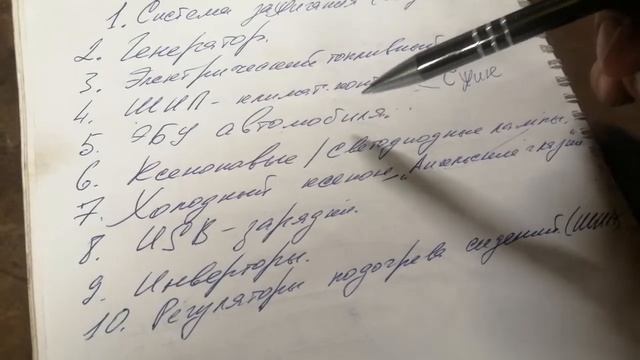 1. Система зажигания
2. Генератор.
3. Электрический топливный
4. ШИП - климат. конт
5. ЭБУ автомобиля.
6. Ксеноновые / светодиодные лампы.
7. Холодный ксенон - "Ангельские глазки"
8. USB - зарядки.
9. Инверторы.
10. Регуляторы подогрева сидений (ШИМ)